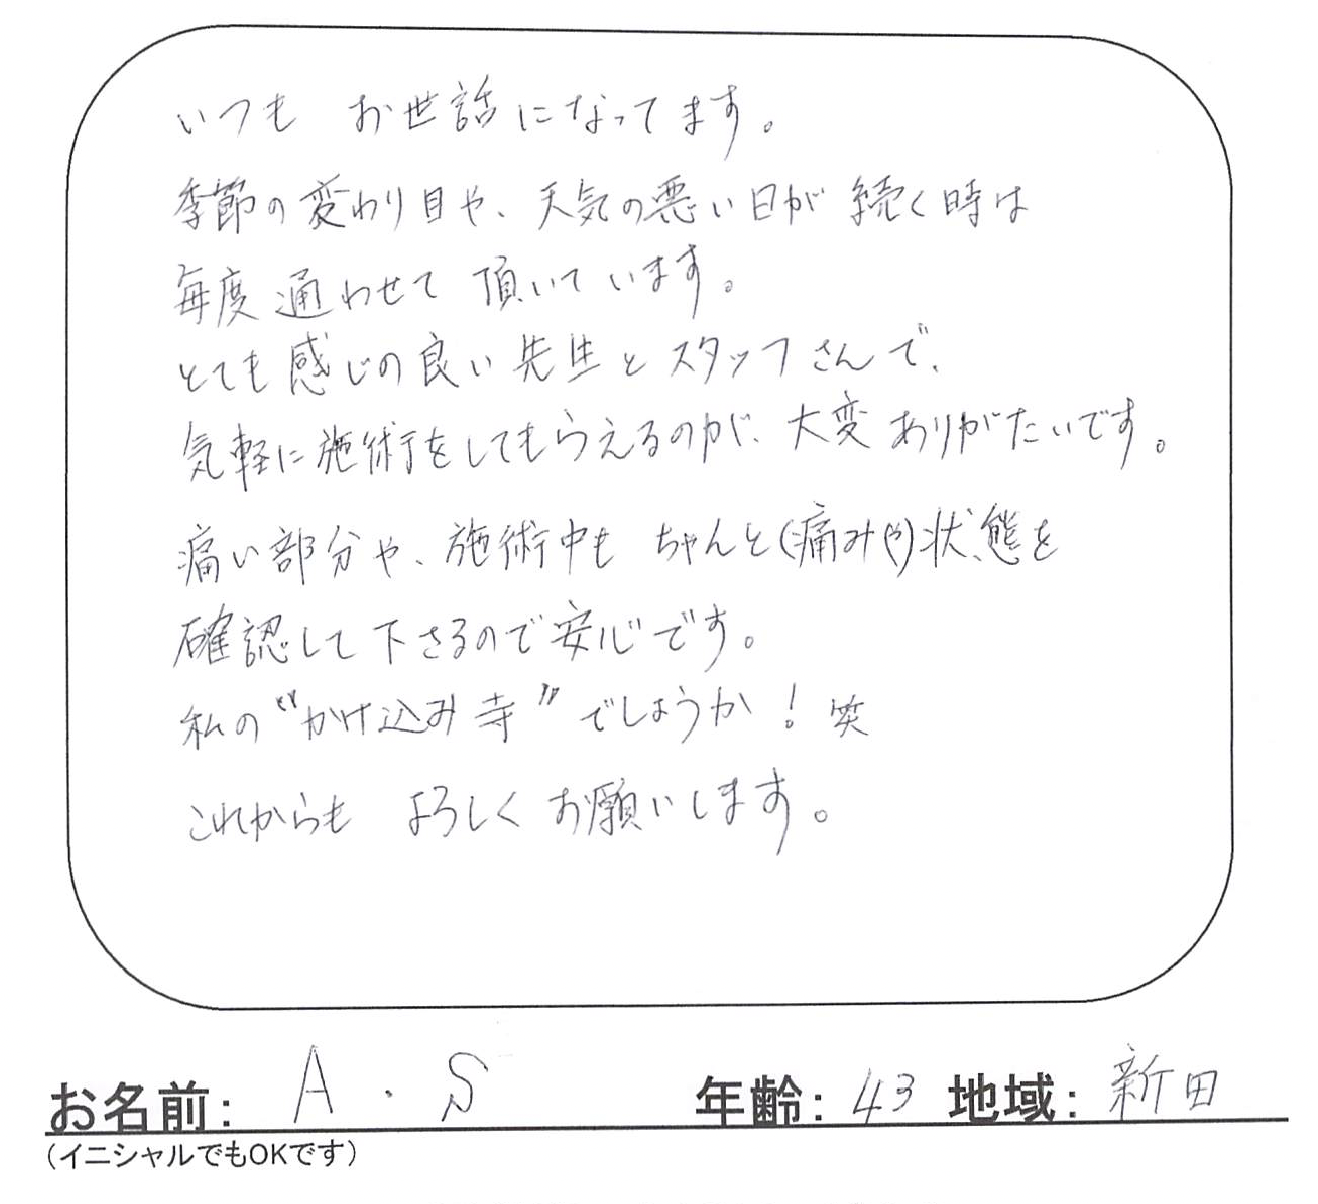 いつも お世話になってます。
季節の変わり目や、天気の悪い日が 続く時は
毎度 通わせて 頂いています。
とても感じの良い先生とスタッフさんで、
気軽に施術をしてもらえるのが、大変ありがたいです。
痛い部分や、施術中も ちゃんと(痛みや)状態を
確認して下さるので安心です。
私の“かけ込み寺”でしょうか！笑
これからも よろしくお願いします。
お名前: A.S 年齢: 43 地域: 新田
(イニシャルでもOKです)